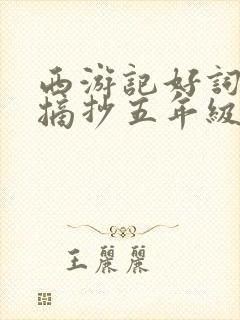 西游記好詞
摘抄五年級
王麗麗